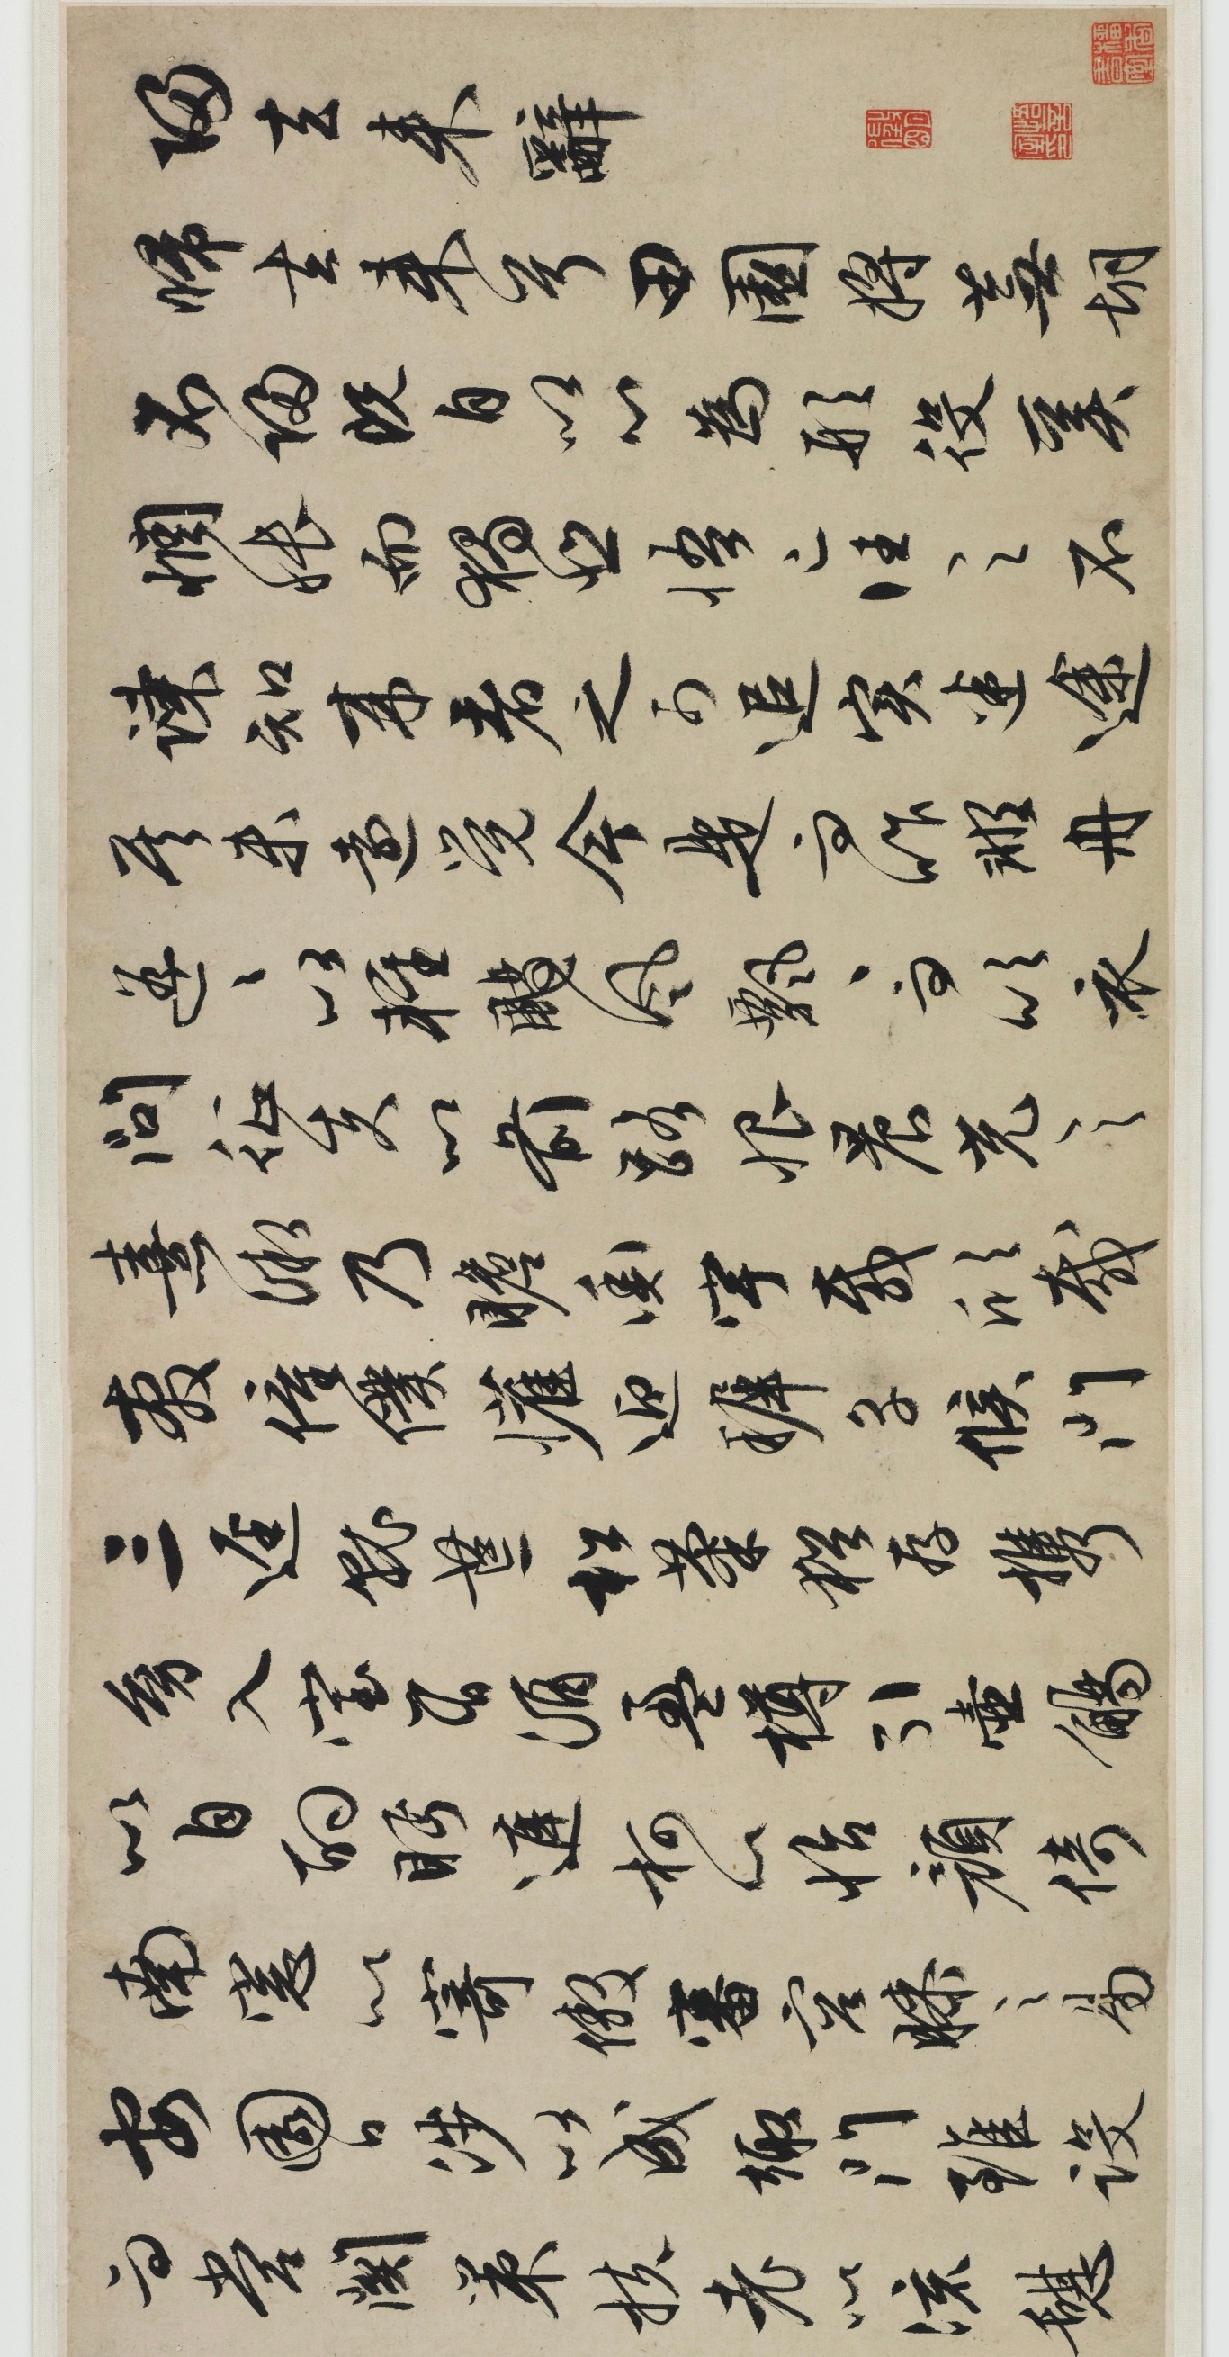 歸去來辭
歸去來兮田園將蕪胡
不歸既自以心為形役奚
惆悵而獨悲悟已往之不
諫知來者之可追實迷途
其未遠覺今是而昨非舟
遙〻以輕颺風飄〻而吹衣
問征夫以前路恨晨光之
熹微乃瞻衡宇載欣載
奔僮僕歡迎稚子候門
三逕就荒松菊猶存攜
幼入室有酒盈樽引壺觴
以自酌眄庭柯以怡顏倚
南窗以寄傲審容膝之易
安園日涉以成趣門雖設
而常關策扶老以流憩